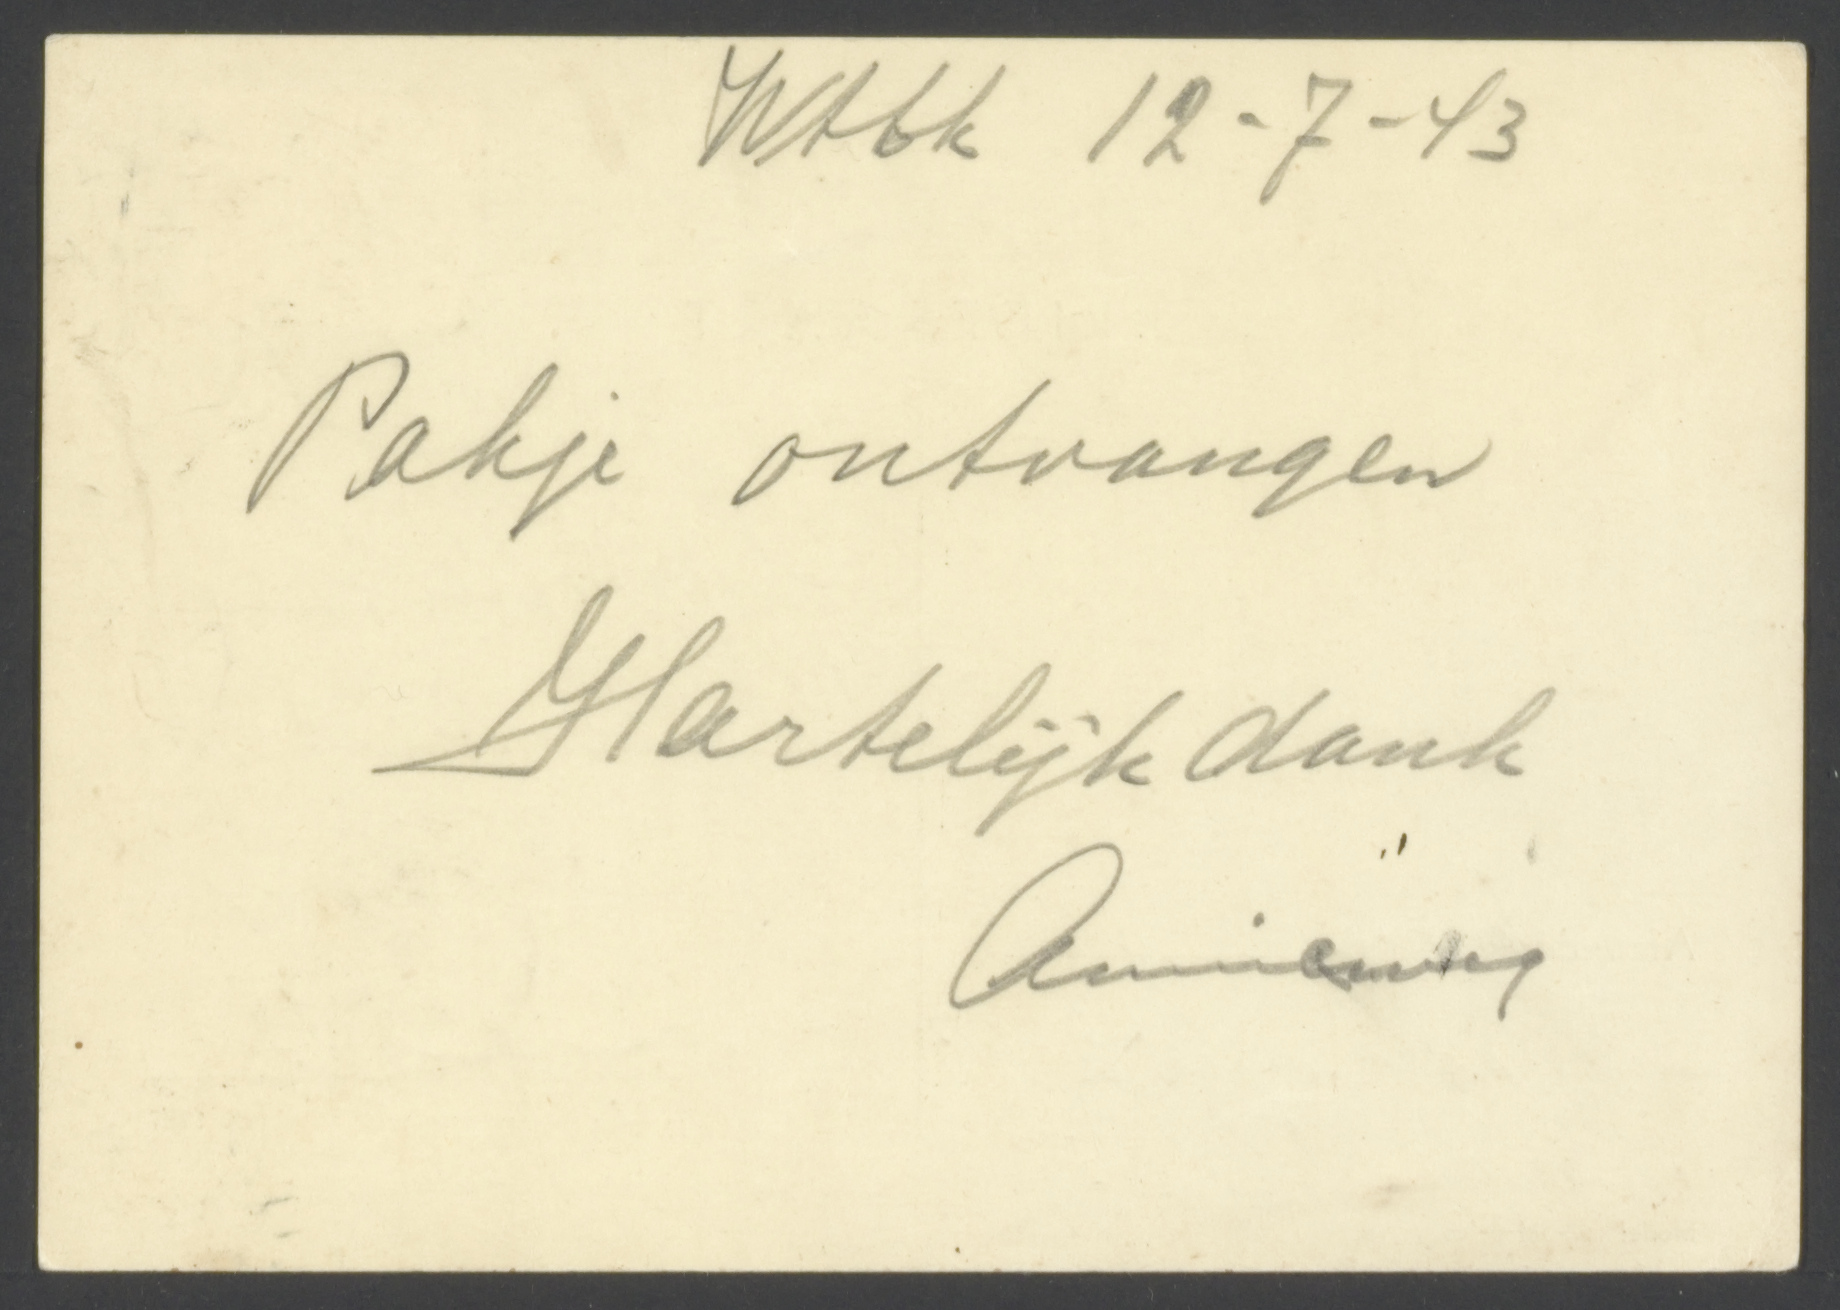 Wtbk 12-7-43
Pakje ontvangen
Hartelijk dank